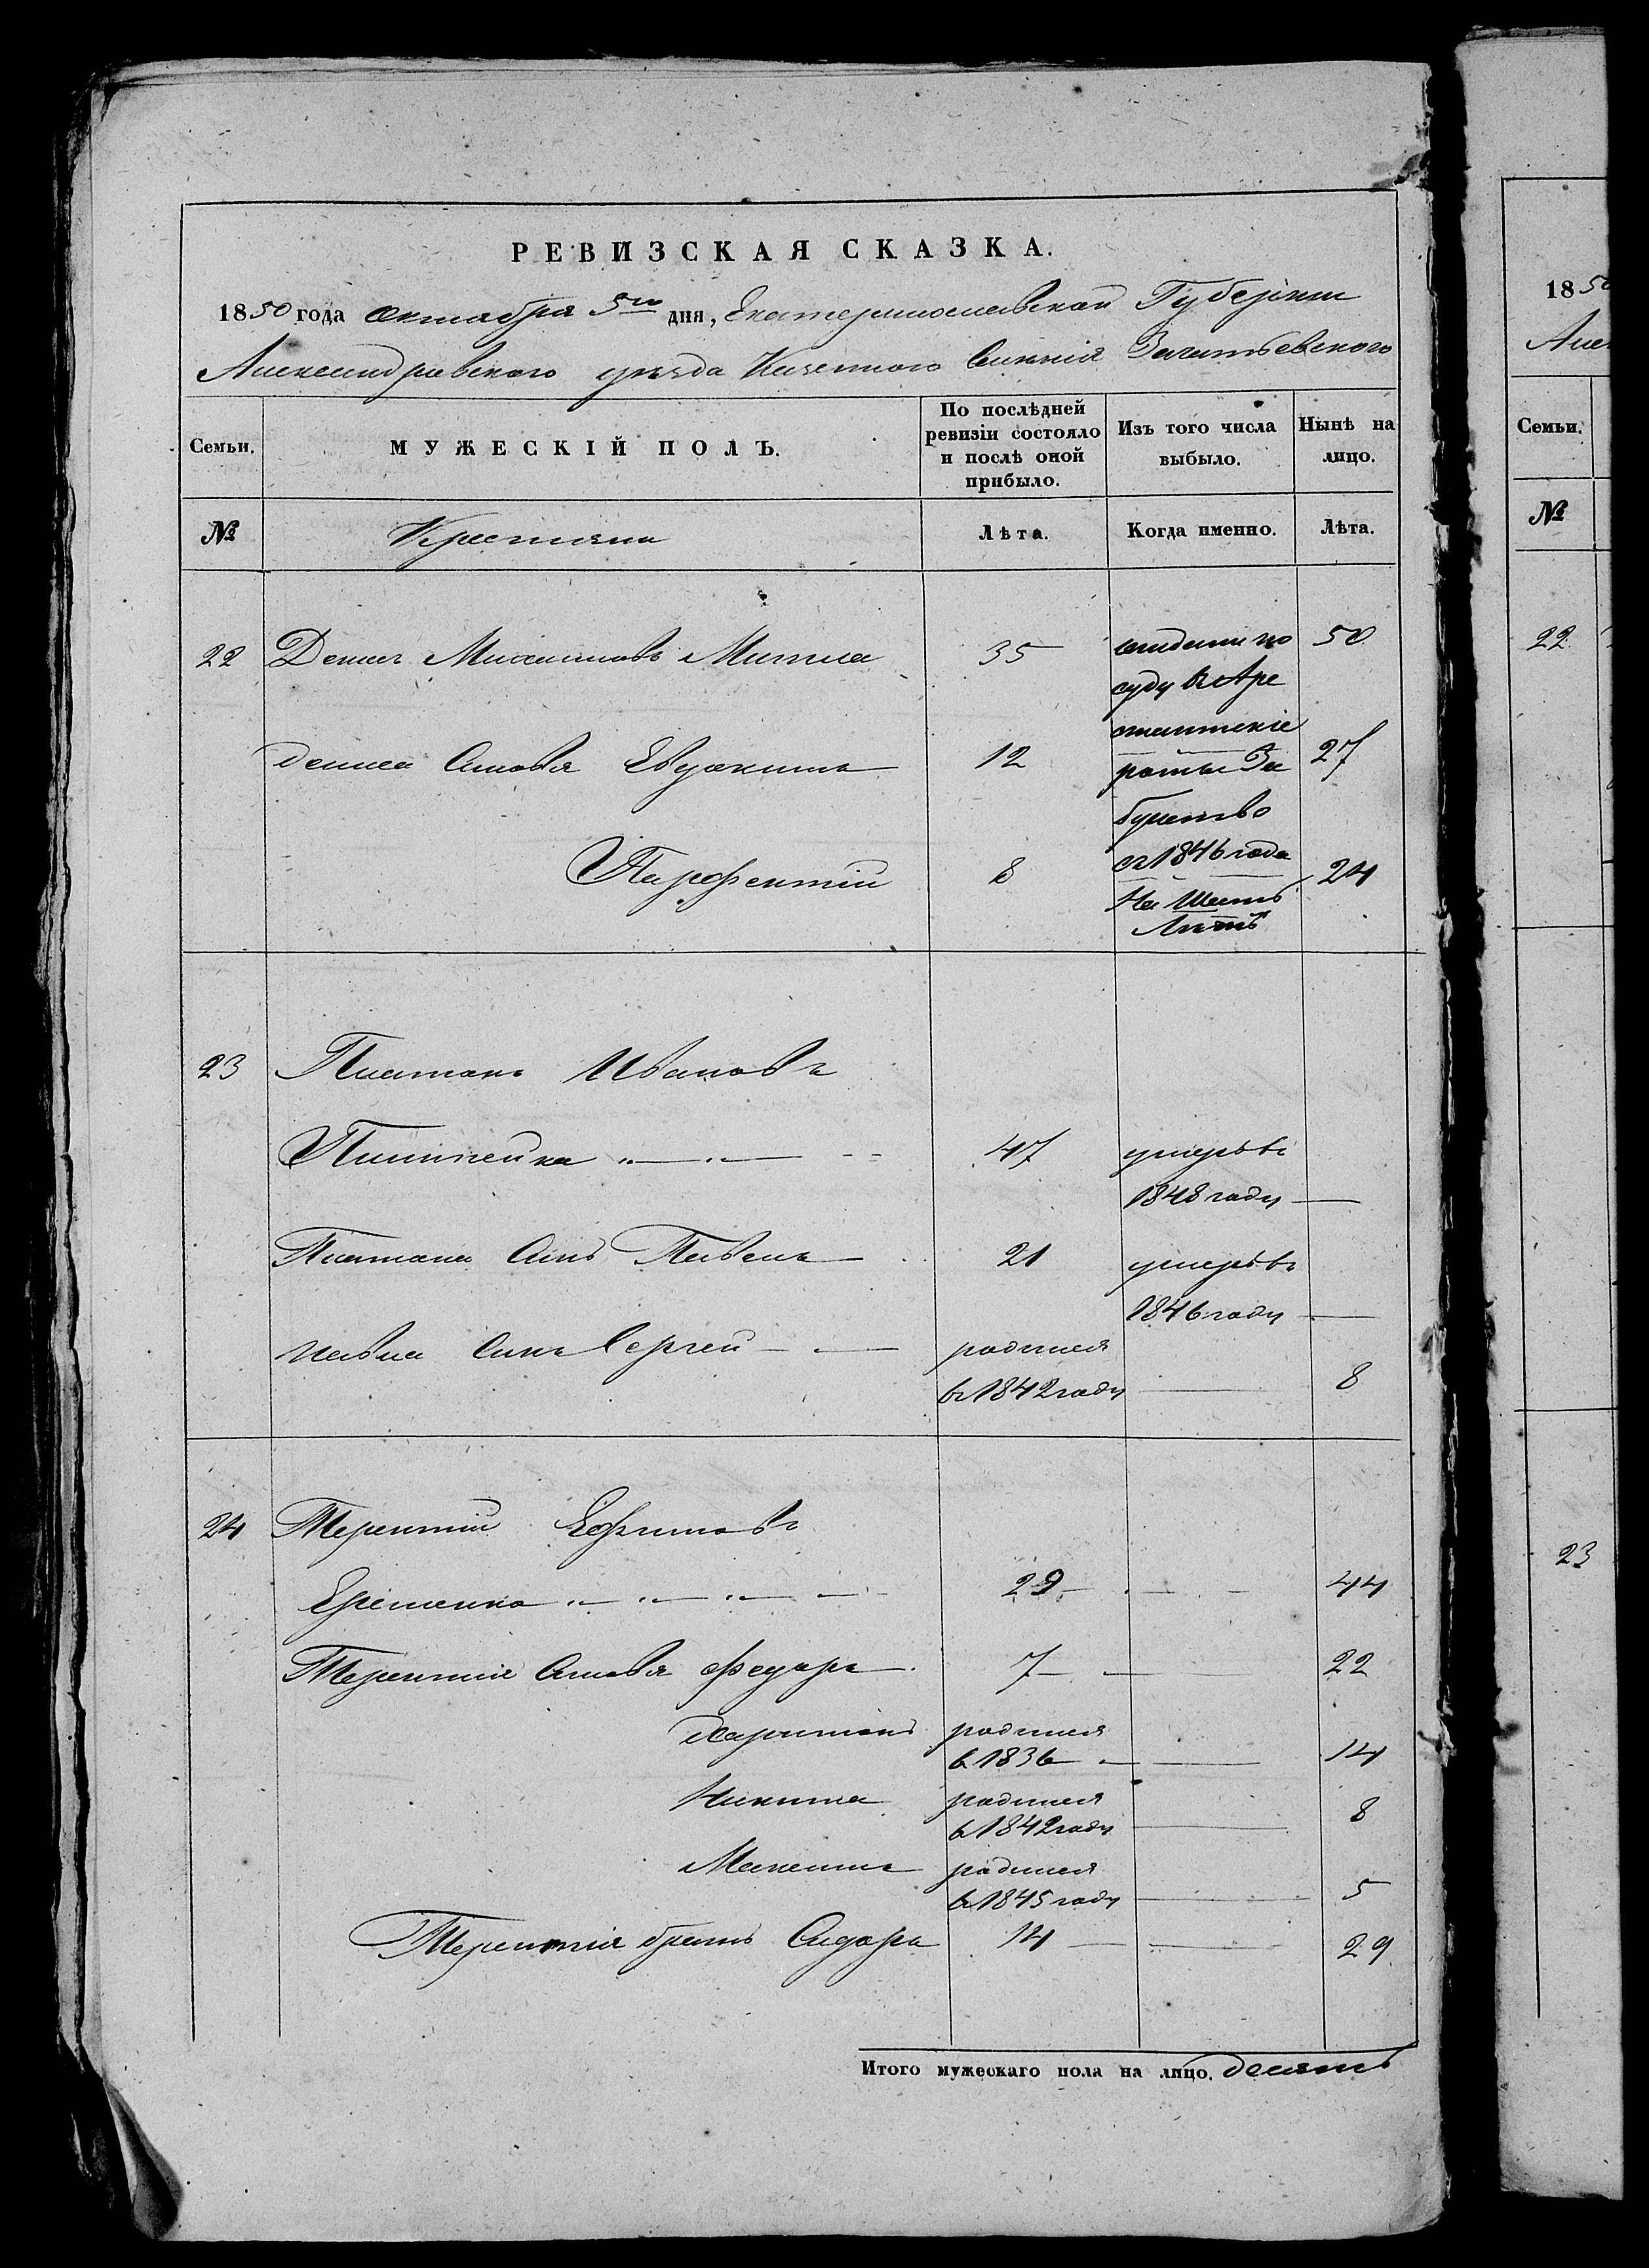 РЕВИЗСКАЯ СКАЗКА.
1850 года октября 5го дня, Екатеринославской Губернии
Александровского уезда Казенного Селенія Зачатьевского
Семьи. МУЖЕСКІЙ ПОЛЪ. По послѣдней ревизіи состояло и послѣ оной прибыло. Изъ того числа выбыло. Нынѣ на лицо.
№ Крестяне Лѣта. Когда именно. Лѣта.
22 Денис Михайловъ Митла 35 по 50
суду в Аре
стантскіе
Дениса Сыновя Евдокимъ 12 роты За 27
буйство
с 1846 года
Парфентій 8 На Шесть 24
Лѣтъ
23 Платонъ Ивановъ
47 умеръ въ
1848 году —
Платона Сынъ Павелъ 21 умеръ въ
1846 году —
Павла Сынъ Сергей родился
в 1842 году 8
24 Терентій Ефимовъ
Еременко 29 44
Терентія Сыновя Федоръ 7 22
Харитонъ родился
в 1836 14
Никита родился
в 1842 году 8
Максимъ родился
в 1845 году 5
Терентія братъ Сидоръ 14 29
Итого мужескаго пола на лицо. десять
1850
Семьи.
№
22
23